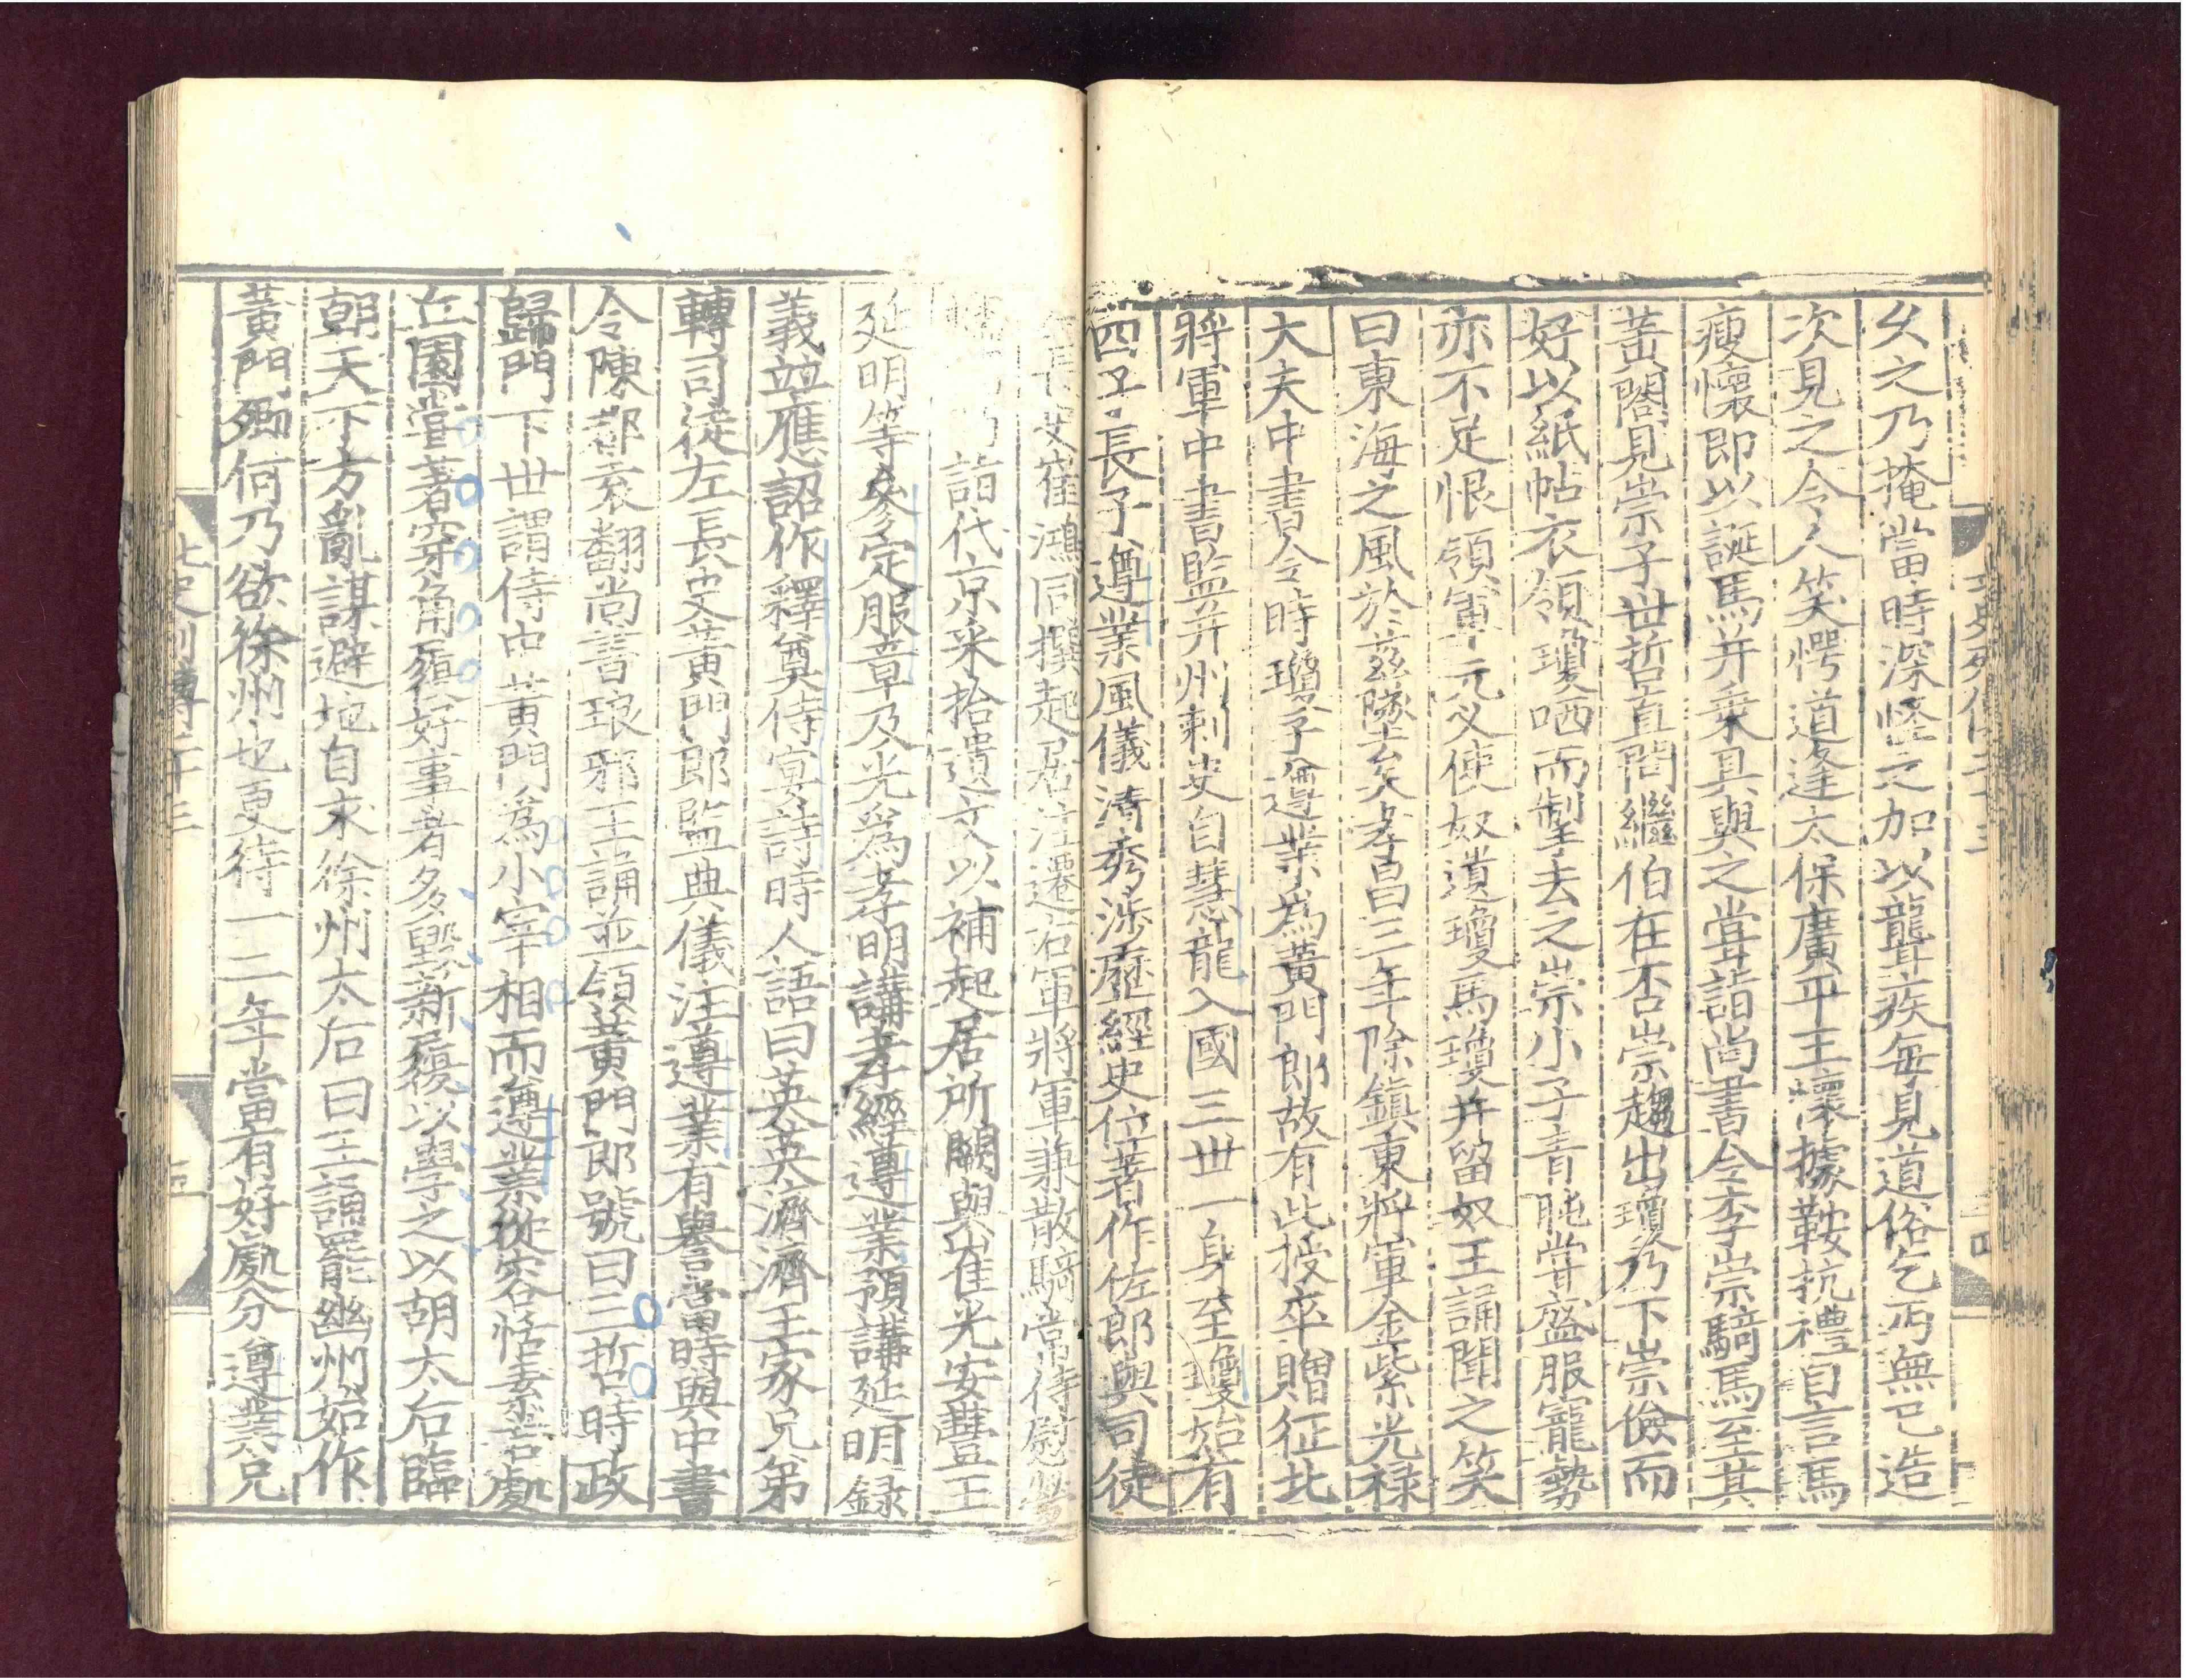 久之乃掩當時深怪之加以聾疾每見道俗乞丐無已造
次見之令人笑愕道逢太保廣平王懷據鞍抗禮自言馬
瘦懷即以誕馬并乘具與之嘗詣尚書令李崇騎馬至其
黃閤見崇子世哲直問繼伯在否崇趨出瓊乃下崇儉而
好以紙帖衣領瓊哂而掣去之崇小子青肫嘗盛服寵勢
亦不足恨領軍元义使奴遺瓊馬瓊并留奴王誦聞之笑
曰東海之風於茲墜矣孝昌三年除鎮東將軍金紫光祿
大夫中書令時瓊子遵業為黃門郎故有此授卒贈征北
將軍中書監并州刺史自慧龍入國三世一身至瓊始有
四子長子遵業風儀清秀涉歷經史位著作佐郎與司徒
崔鴻同撰起居注遷右軍將軍兼散騎常侍慰勞
詣代京采拾遺文以補起居所闕與崔光安豐王
延明等參定服章及光為孝明講孝經遵業預講延明錄
義並應詔作釋奠侍宴詩時人語曰英英濟濟王家兄弟
轉司徒左長史黃門郎監典儀注遵業有譽當時與中書
令陳郡袁翻尚書琅邪王誦並領黃門郎號曰三哲時政
歸門下世謂侍中黃門為小宰相而遵業從容恬素若處
丘園嘗著穿角履好事者多毀新履以學之以胡太后臨
朝天下方亂謀避地自求徐州太后曰王誦罷幽州始作
黃門卿何乃欲徐州也更待一二年當有好處分遵業兄
北史列傳二十三